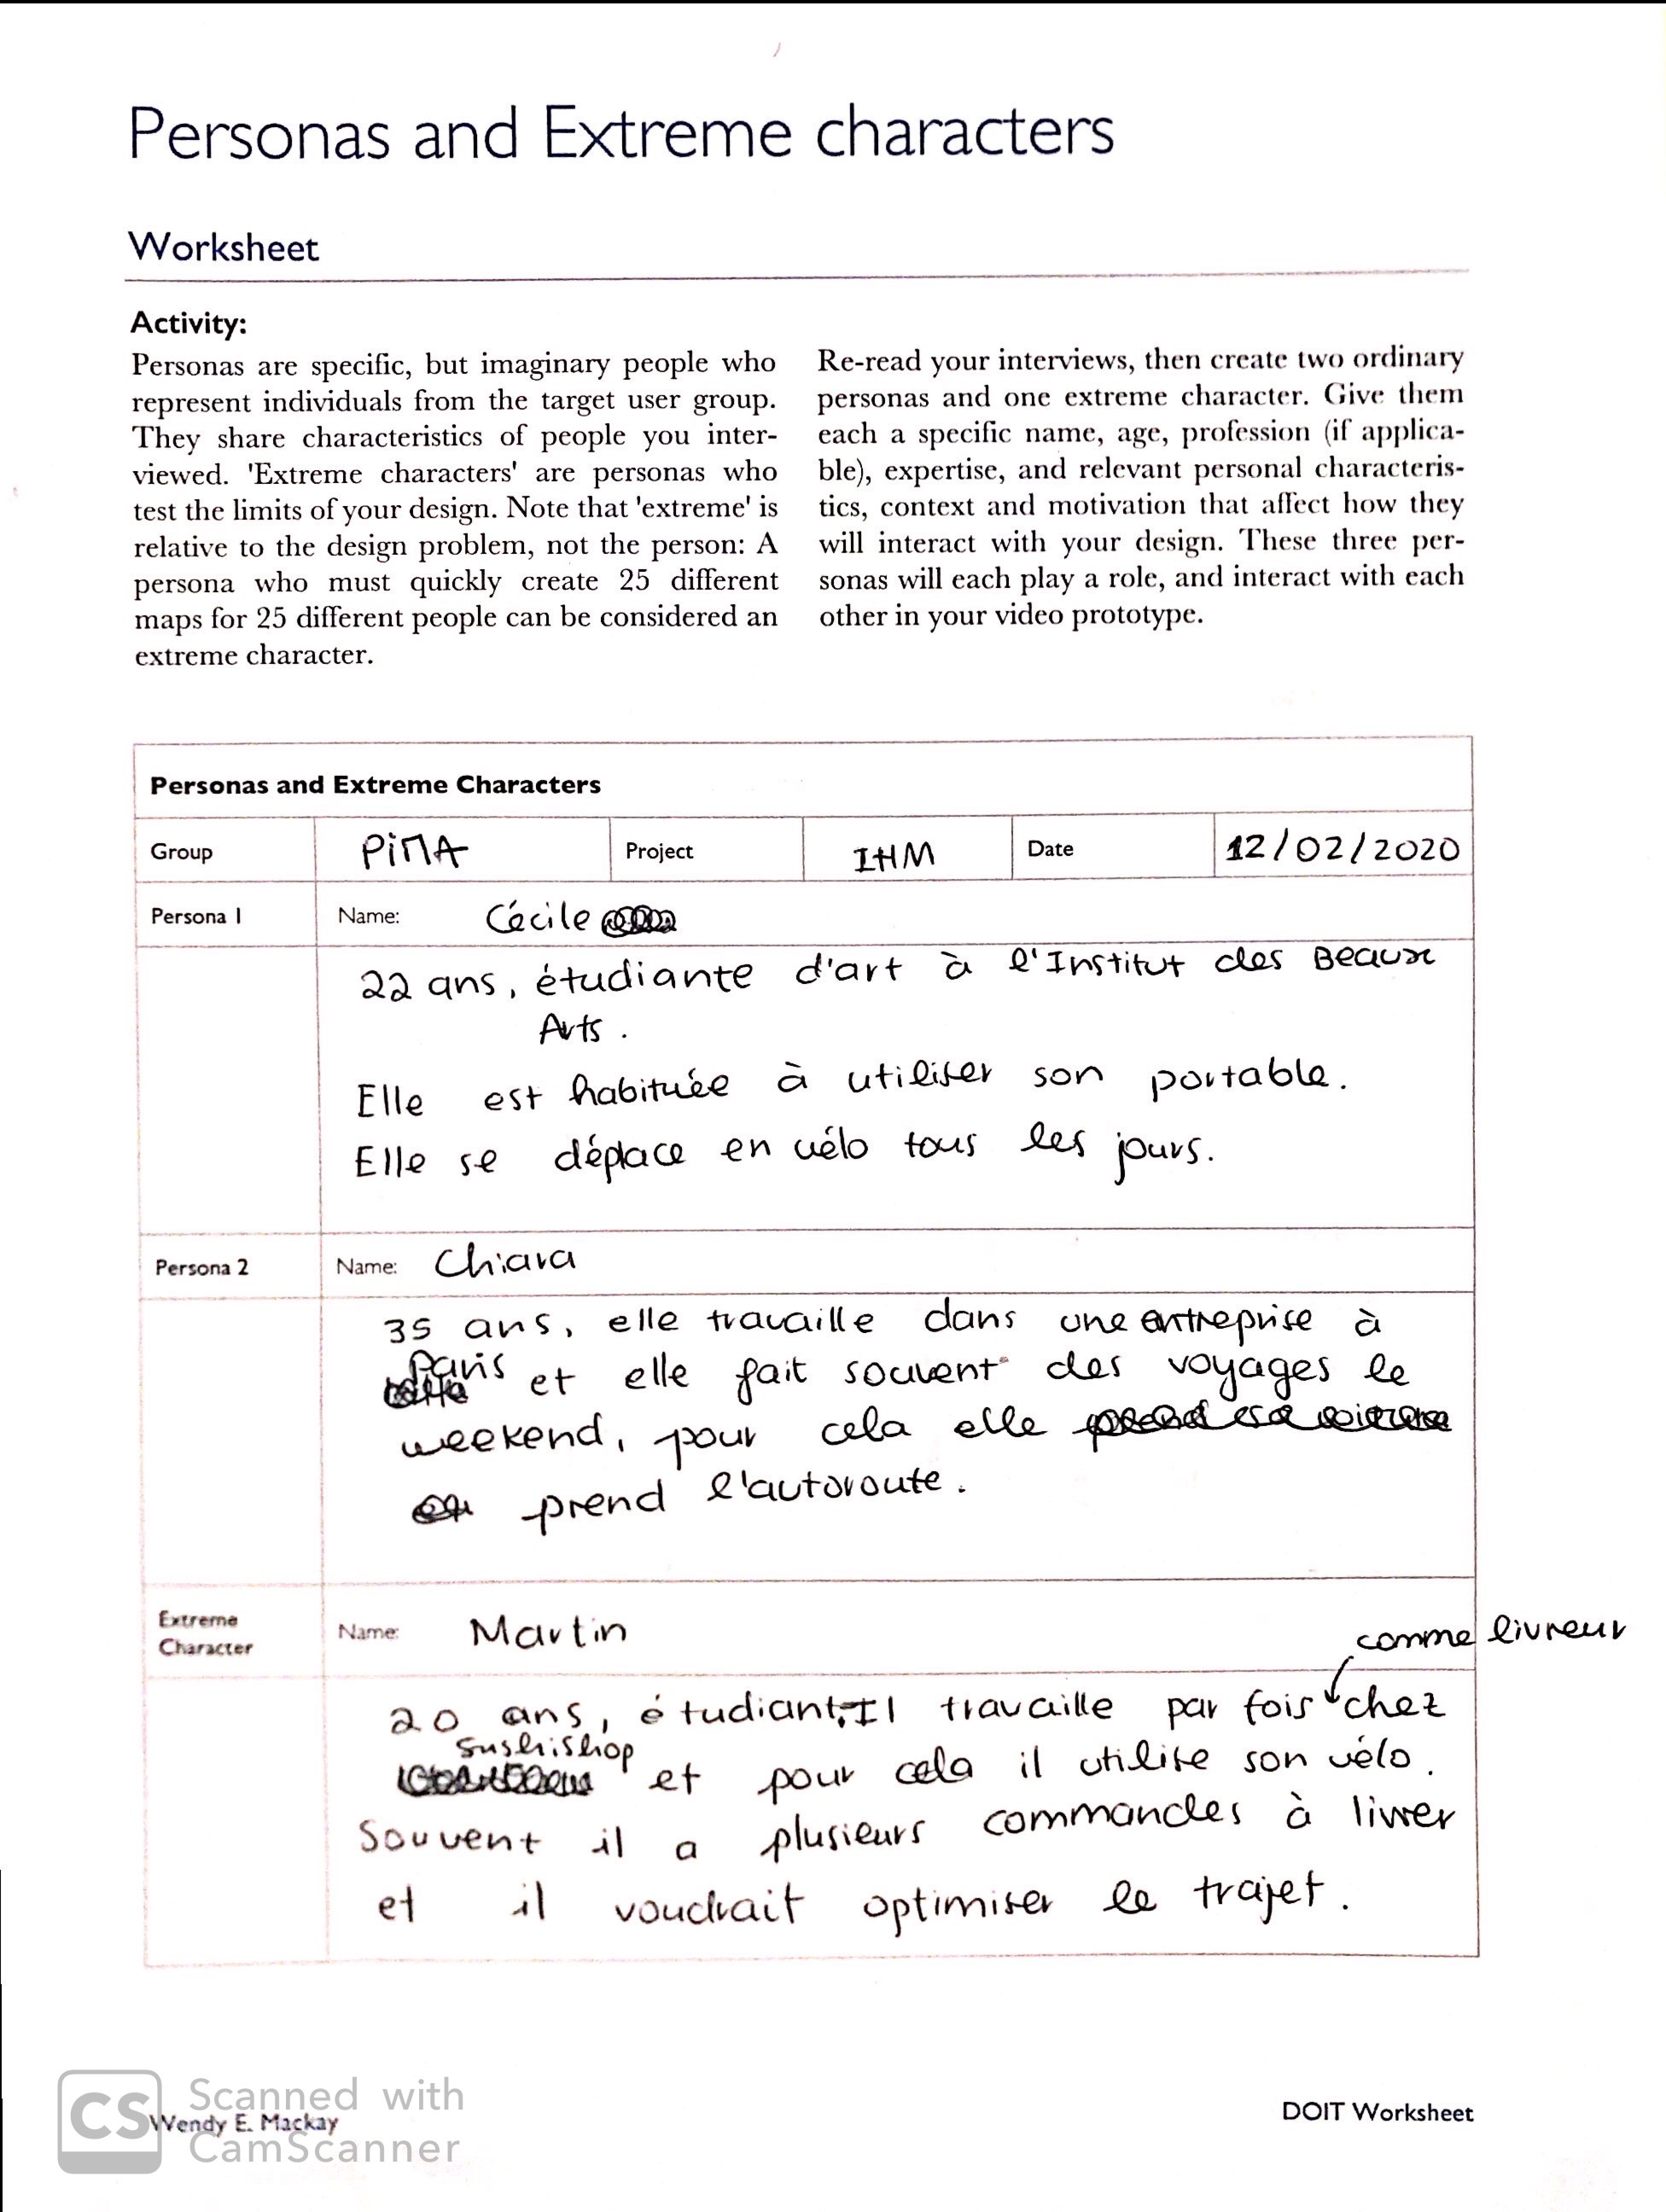 Personas and Extreme characters
Worksheet
Activity:
Personas are specific, but imaginary people who
represent individuals from the target user group.
They share characteristics of people you inter-
viewed. 'Extreme characters' are personas who
test the limits of your design. Note that 'extreme' is
relative to the design problem, not the person: A
persona who must quickly create 25 different
maps for 25 different people can be considered an
extreme character.
Re-read your interviews, then create two ordinary
personas and one extreme character. Give them
each a specific name, age, profession (if applica-
ble), expertise, and relevant personal characteris-
tics, context and motivation that affect how they
will interact with your design. These three per-
sonas will each play a role, and interact with each
other in your video prototype.
Personas and Extreme Characters
Group PiMA Project IHM Date 12/02/2020
Persona 1 Name: Cécile
22 ans, étudiante d'art à l'Institut des Beaux
Arts.
Elle est habituée à utiliser son portable.
Elle se déplace en vélo tous les jours.
Persona 2 Name: Chiara
35 ans, elle travaille dans une entreprise à
Paris et elle fait souvent des voyages le
weekend, pour cela elle
prend l'autoroute.
Extreme
Character
Name: Martin
comme livreur
20 ans, étudiant. Il travaille par fois chez
Sushishop et pour cela il utilise son vélo.
Souvent il a plusieurs commandes à livrer
et il voudrait optimiser le trajet.
CS Scanned with
CamScanner
Wendy E. Mackay
DOIT Worksheet